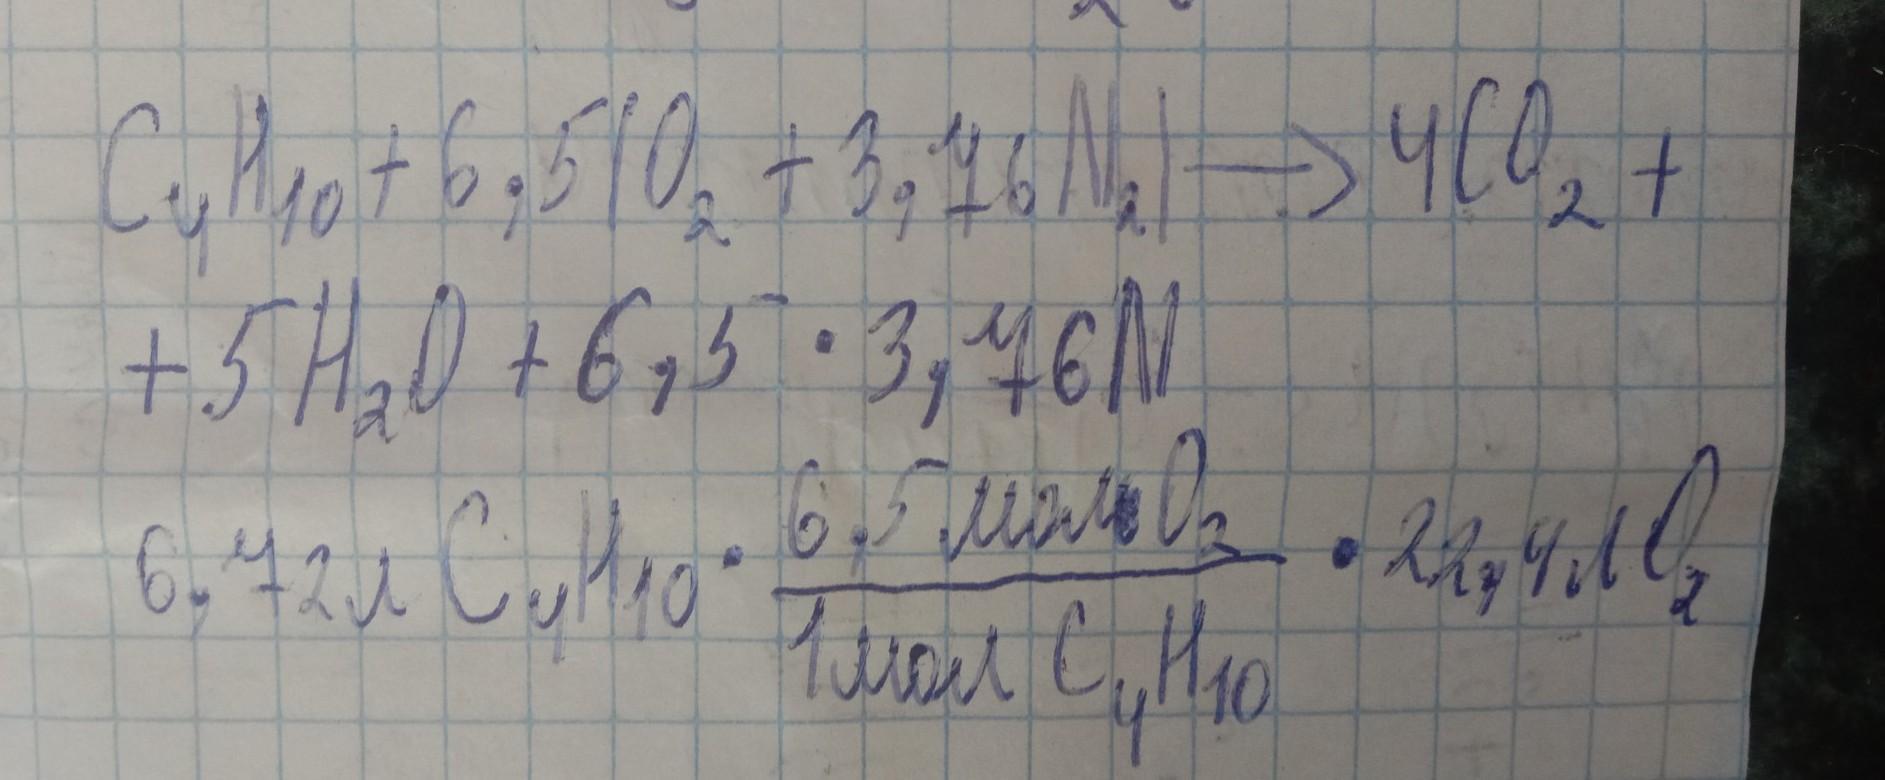 C₄H₁₀ + 6,5(O₂ + 3,76N₂) → 4CO₂ +
+ 5H₂O + 6,5 · 3,76N
6,72л C₄H₁₀ · 6,5 моль O₂ / 1 мол C₄H₁₀ · 22,4л O₂